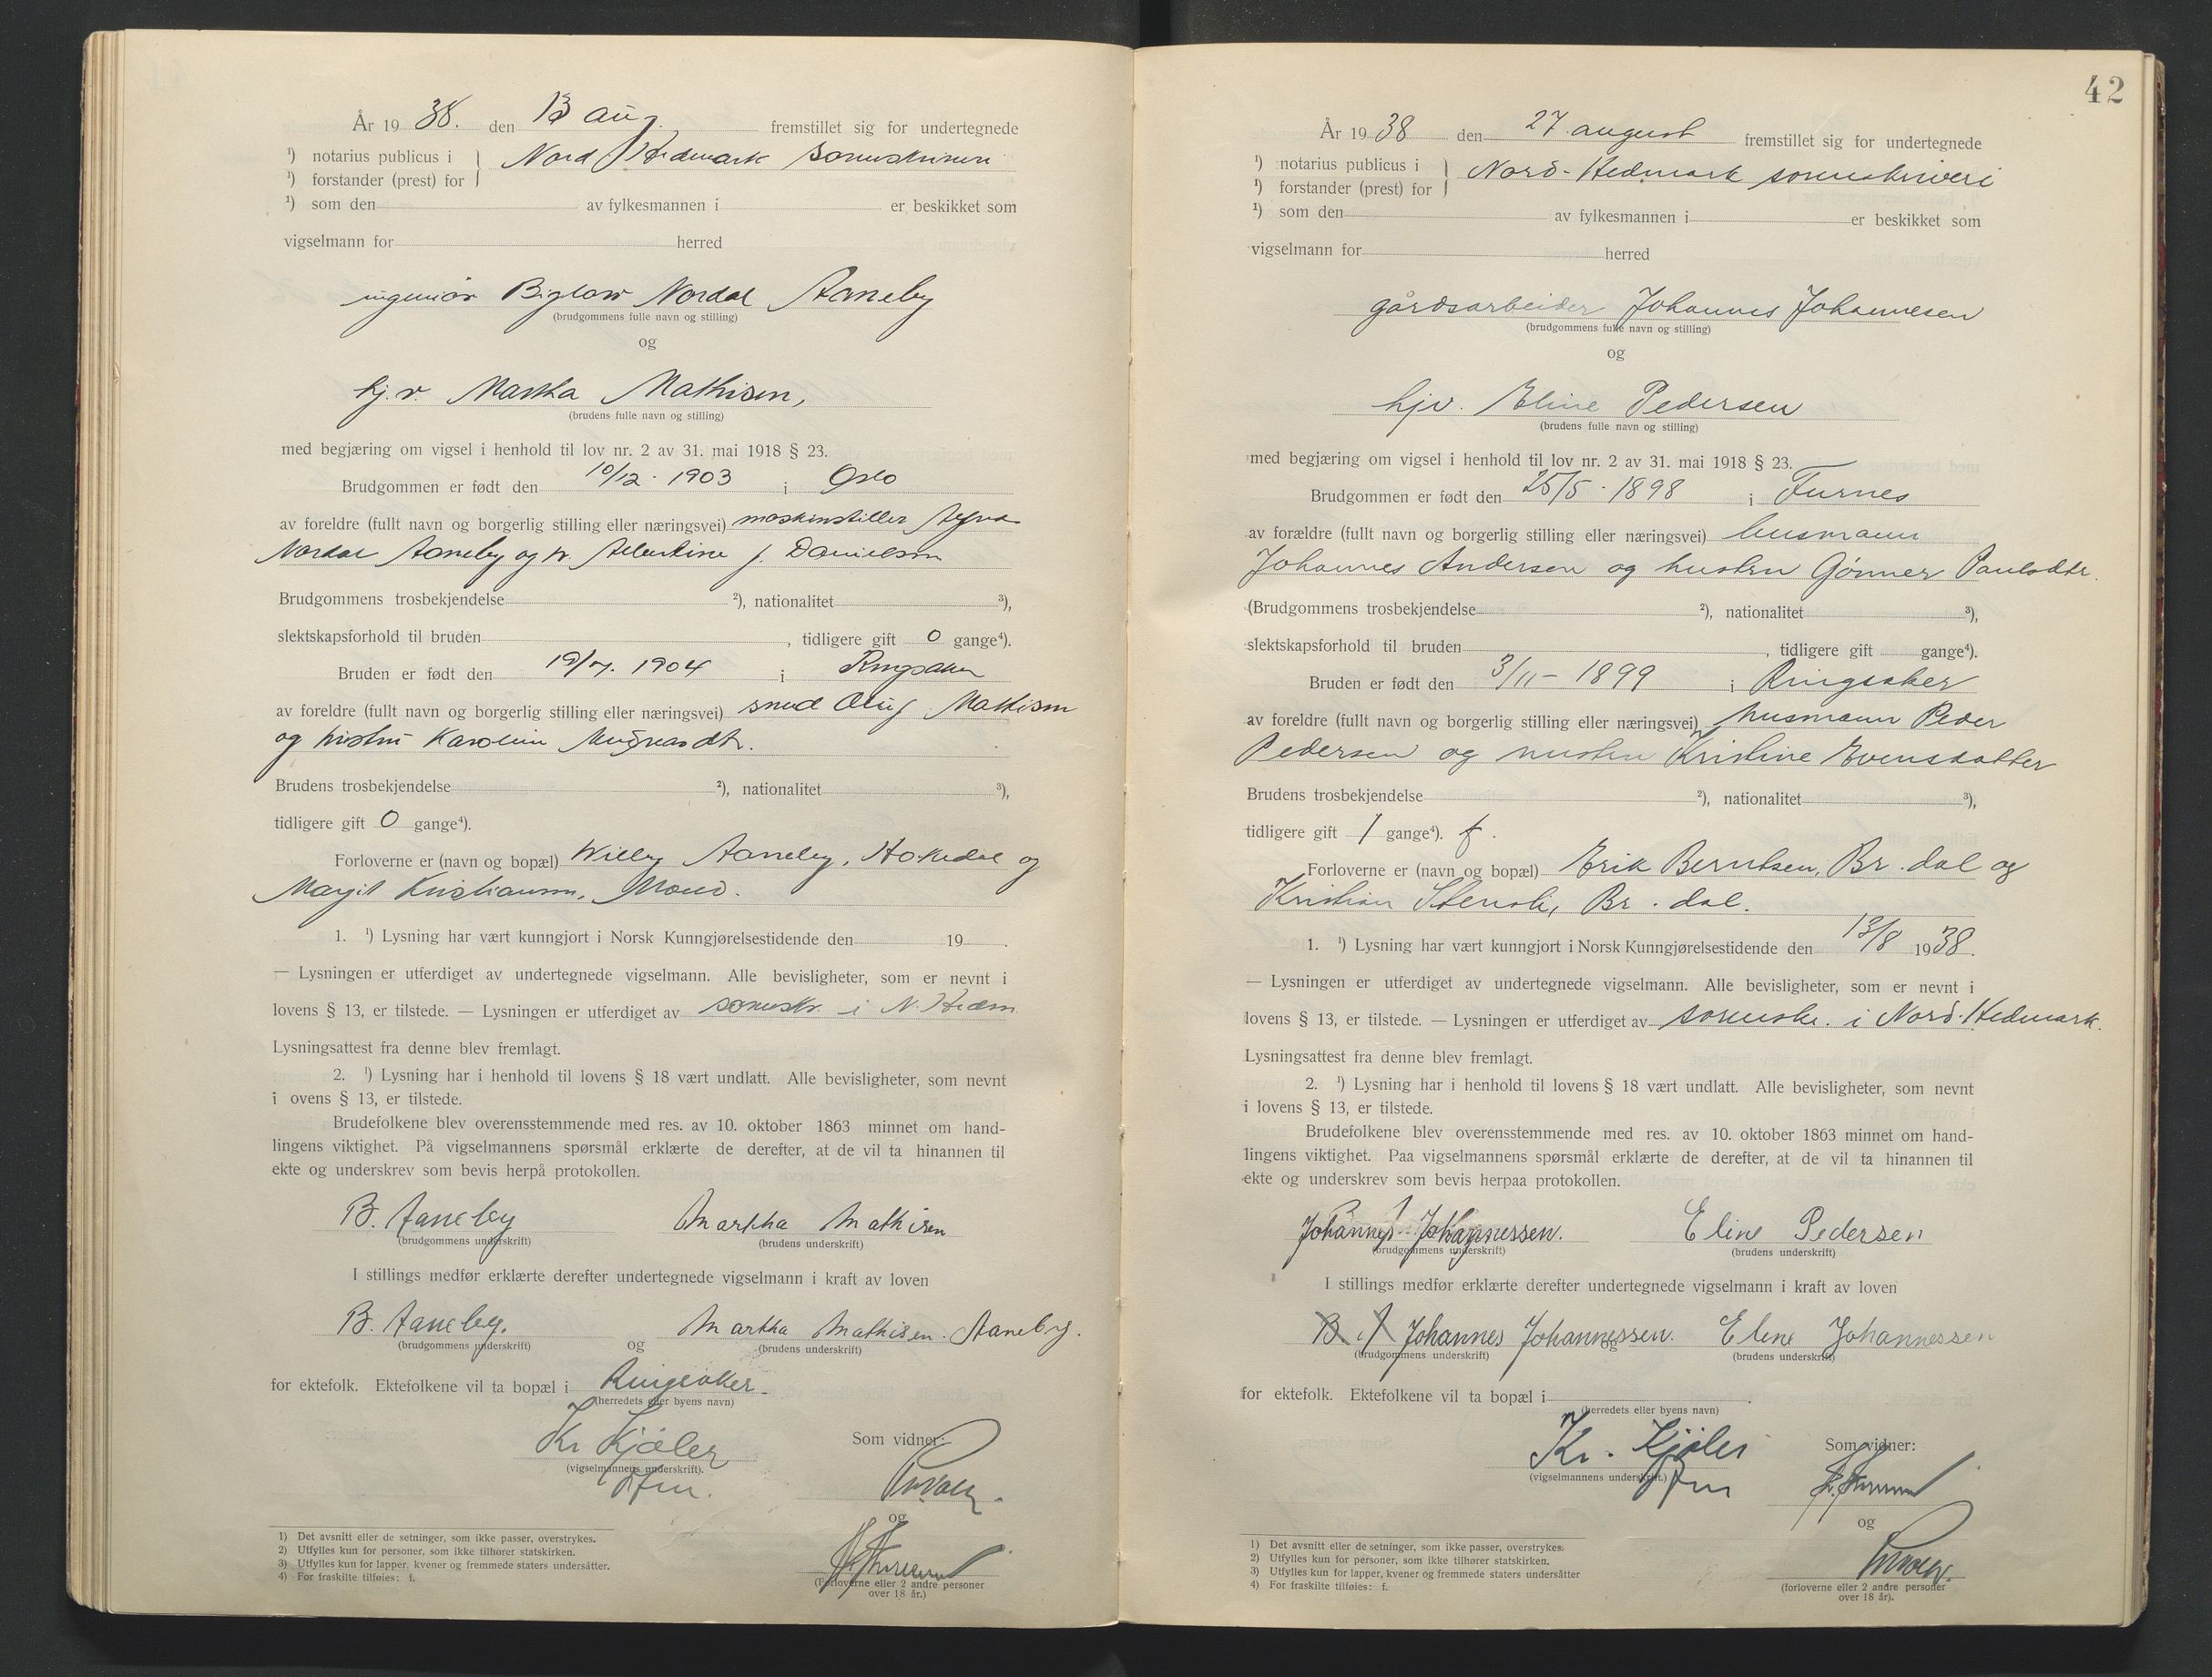 År 19 38. den 13 aug. fremstillet sig for undertegnede
¹) notarius publicus i } Nord Hedmark
¹) forstander (prest) for
¹) som den av fylkesmannen i er beskikket som
vigselmann for herred
ingeniør Nordal Aaneby
(brudgommens fulle navn og stilling)
og
hj.v. Martha Mathisen,
(brudens fulle navn og stilling)
med begjæring om vigsel i henhold til lov nr. 2 av 31. mai 1918 § 23.
Brudgommen er født den 10/12 · 1903 i Oslo
av foreldre (fullt navn og borgerlig stilling eller næringsvei) maskinstiller
Nordal Aaneby og h. Albertine f. Danielsen
Brudgommens trosbekjendelse ²), nationalitet ³),
slektskapsforhold til bruden , tidligere gift 0 gange⁴).
Bruden er født den 1904 i Ringsaker
av foreldre (fullt navn og borgerlig stilling eller næringsvei) smed Mathisen
og hustru Karoline
Brudens trosbekjendelse ²), nationalitet ³),
tidligere gift 0 gange⁴).
Forloverne er (navn og bopæl) Willy Aaneby, Hakedal og
Margit Kristiansen, Moelv.
1. ¹) Lysning har vært kunngjort i Norsk Kunngjørelsestidende den 19 .
— Lysningen er utferdiget av undertegnede vigselmann. Alle bevisligheter, som er nevnt i
lovens § 13, er tilstede. — Lysningen er utferdiget av sorenskr. i N. Hedm
Lysningsattest fra denne blev fremlagt.
2. ¹) Lysning har i henhold til lovens § 18 vært undlatt. Alle bevisligheter, som nevnt
i ovens § 13, er tilstede.
Brudefolkene blev overensstemmende med res. av 10. oktober 1863 minnet om hand-
lingens viktighet. På vigselmannens spørsmål erklærte de derefter, at de vil ta hinannen til
ekte og underskrev som bevis herpå protokollen.
B. Aaneby Martha Mathisen
(brudgommens underskrift) (brudens underskrift)
I stillings medfør erklærte derefter undertegnede vigselmann i kraft av loven
B. Aaneby. og Martha Mathisen. Aaneby.
(brudgommens underskrift) (brudens underskrift)
for ektefolk. Ektefolkene vil ta bopæl i Ringsaker.
(herredets eller byens navn)
Kr Kjøler Som vidner:
(vigselmannens underskrift).
ffm.
og
(Forloverne eller 2 andre personer
over 18 år.)
1) Det avsnitt eller de setninger, som ikke passer, overstrykes.
2) Utfylles kun for personer, som ikke tilhører statskirken.
3) Utfylles kun for lapper, kvener og fremmede staters undersåtter.
4) For fraskilte tilføies: f.
42
År 19 38 den 27. august fremstillet sig for undertegnede
¹) notarius publicus i } Nord-Hedmark sorenskriveri
¹) forstander (prest) for
¹) som den av fylkesmannen i er beskikket som
vigselmann for herred
gårdsarbeider Johannes Johannesen
(brudgommens fulle navn og stilling)
og
hjv. Eline Pedersen
(brudens fulle navn og stilling)
med begjæring om vigsel i henhold til lov nr. 2 av 31. mai 1918 § 23.
Brudgommen er født den 25/5 · 1898 i Furnes
av forældre (fullt navn og borgerlig stilling eller næringsvei) husmann
Johannes Andersen og hustru Gønner Paulsdtr.
(Brudgommens trosbekjendelse ²), nationalitet ³),
slektskapsforhold til bruden , tidligere gift gange⁴).
Bruden er født den 3/11 - 1899 i Ringsaker
av foreldre (fullt navn og borgerlig stilling eller næringsvei) husmann Peder
Pedersen og hustru Kristine Evensdatter
Brudens trosbekjendelse ²), nationalitet ³),
tidligere gift 1 gange⁴). f.
Forloverne er (navn og bopæl) Erik Berntsen, Br.dal og
Kristian Stensli, Br.dal.
1. ¹) Lysning har vært kunngjort i Norsk Kunngjørelsestidende den 13/8 1938.
— Lysningen er utferdiget av undertegnede vigselmann. Alle bevisligheter, som er nevnt i
lovens § 13, er tilstede. — Lysningen er utferdiget av sorenskr. i Nord-Hedmark.
Lysningsattest fra denne blev fremlagt.
2. ¹) Lysning har i henhold til lovens § 18 vært undlatt. Alle bevisligheter, som nevnt
i lovens § 13, er tilstede.
Brudefolkene blev overensstemmende med res. av 10. oktober 1863 minnet om hand-
lingens viktighet. Paa vigselmannens spørsmål erklærte de derefter, at de vil ta hinannen til
ekte og underskrev som bevis herpaa protokollen.
Johannes Johannessen. Eline Pedersen
(brudgommens underskrift) (brudens underskrift)
I stillings medfør erklærte derefter undertegnede vigselmann i kraft av loven
B. A Johannes Johannessen. og Eline Johannessen
(brudgommens underskrift) (brudens underskrift)
for ektefolk. Ektefolkene vil ta bopæl i .
(herredets eller byens navn)
Kr. Kjøler Som vidner:
(vigselmannens underskrift.)
ffm
og
(forloverne eller 2 andre personer
over 18 år).
1) Det avsnitt eller de setninger, som ikke passer, overstrykes.
2) Utfylles kun for personer, som ikke tilhører statskirken.
3) Utfylles kun for lapper, kvener og fremmede staters undersåtter
4) For fraskilte tilføies: f.